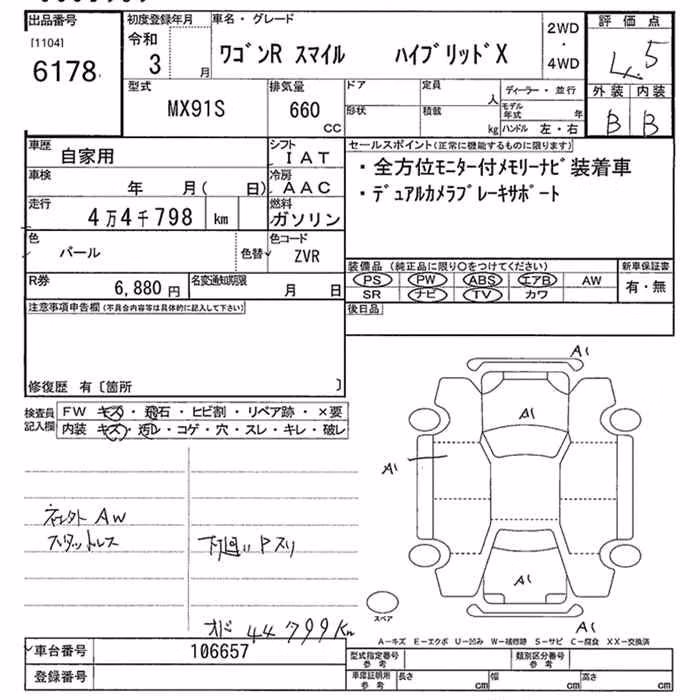 出品番号
[1104]
6178
初度登録年月
令和
3 月
車名・グレード
ワゴンR スマイル ハイブリッドX
2WD
・
4WD
評価点
4.5
外装 内装
B B
型式
MX91S
排気量
660
CC
ドア
形状
定員
人
積載
kg
ディーラー・並行
モデル年式 年
ハンドル 左・右
車歴
自家用
シフト
IAT
車検
年 月( 日)
冷房
AAC
走行
4万4千798 km
燃料
ガソリン
色
パール
色替
色コード
ZVR
R券
6,880 円
名変通知期限
月 日
セールスポイント(正常に機能するものに限ります)
・全方位モニター付メモリーナビ装着車
・デュアルカメラブレーキサポート
装備品 (純正品に限り○をつけてください)
PS PW ABS エアB AW
SR ナビ TV カワ
新車保証書
有・無
後日品
注意事項申告欄(不具合内容等は具体的に記入して下さい)
修復歴 有〔箇所 〕
検査員
記入欄
FW キズ・飛石・ヒビ割・リペア跡・×要
内装 キズ・汚レ・コゲ・穴・スレ・キレ・破レ
AW
スタットレス
下廻り Pスリ
オド 44799Km
A1
A1
A1
A1
A1
スペア
A−キズ E−エクボ U−凹み W−補修跡 S−サビ C−腐食 XX−交換済
車台番号
106657
登録番号
型式指定番号
参考
類別区分番号
参考
車庫証明用
参考
長さ cm
幅 cm
高さ cm